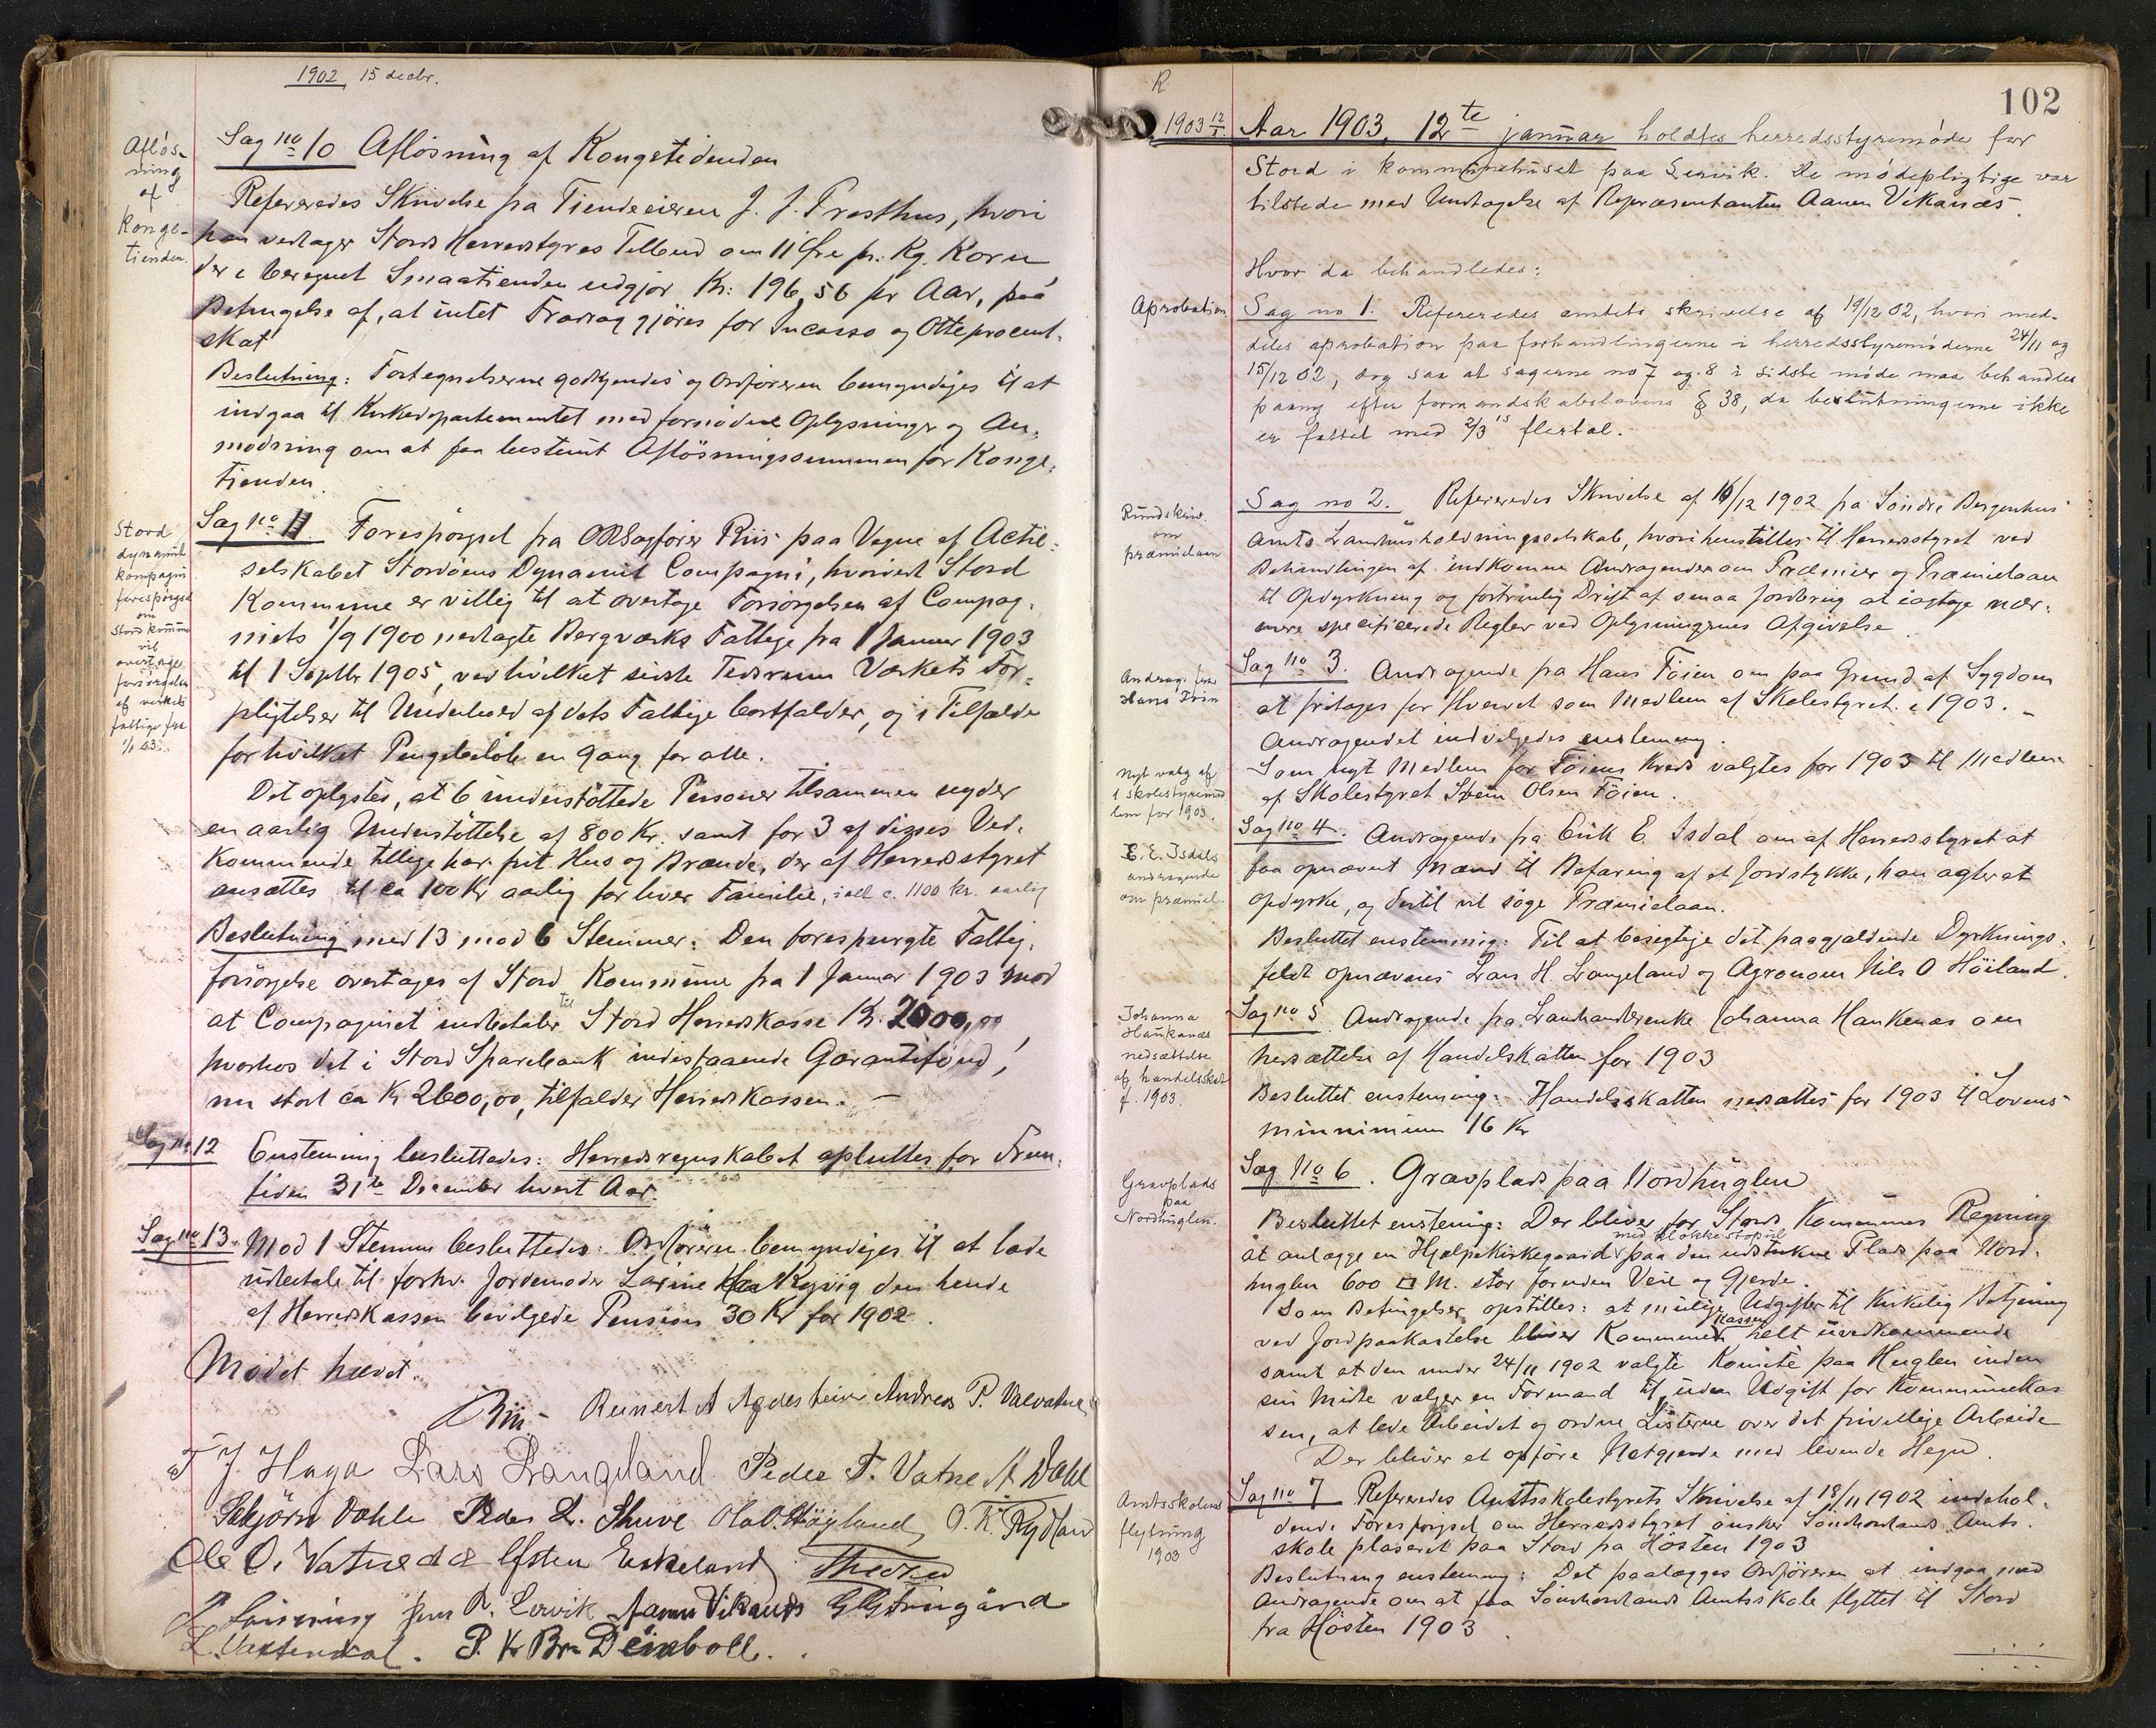 1902 15 decbr.
Afløs-
ning
af
Konge-
tienden.
Sag no 10 Afløsning af Kongetiden­den
Refereredes Skrivelse fra Tiendeeieren J. J. Presthus, hvori
han vedtager Stords Herredstyres Tilbud om 11 Øre pr. Kg. Korn
der i beregnet Smaatienden udgjør Kr: 196,56 pr Aar, paa
Betingelse af, at intet Fradrag gjøres for Incasso og Otteprocent-
skat
Beslutning: Fortegnelserne godkjendes og Ordføreren bemyndiges til at
indgaa til Kirkedepartementet med fornødne Oplysninger og An-
modning om at faa bestemt Afløsningssummen for Konge-
tienden.
Stord
dynamit
kompagni
forespørgsel
om
Stord komune
vil
overtage
forsørgelsen
af verkets
fattige fra
1/1 03.
Sag no 11 Forespørgsel fra ORSagfører Riis paa Vegne af Actie-
selskabet Stordøens Dynamit Compagni, hvorvidt Stord
Kommune er villig til at overtage Forsørgelsen af Compag-
niets 1/9 1900 nedlagte Bergværks Fattige fra 1 Januar 1903
til 1 Septbr 1905, ved hvilket sidste Tidsrum Værkets For-
pligtelser til Underhold af dets Fattige bortfalder, og i Tilfælde
for hvilket Pengebeløb en gang for alle.
Det oplystes, at 6 understøttede Personer tilsammen nyder
en aarlig Understøttelse af 800 Kr. samt for 3 af disses Ved-
kommende tillige har frit Hus og Brænde, der af Herredsstyret
ansættes til ca 100 Kr aarlig for hver Familie, ialt c. 1100 kr. aarlig
Beslutning med 13 mod 6 Stemmer: Den forespurgte Fattig-
forsørgelse overtages af Stord Kommune fra 1 Januar 1903 mod
at Compagniet indbetaler til Stord Herredskasse Kr. 2000,00
hvorhos det i Stord Sparebank indestaaende Garantifond,
nu stort ca Kr 2600,00, tilfalder Herredskassen. —
Sag no 12 Enstemmig besluttedes: Herredsregnskabet afsluttes for Frem-
tiden 31te December hvert Aar.
Sag no 13. Mod 1 Stemme besluttedes: Ordføreren bemyndiges til at lade
udbetale til forhv. Jordemoder Larine Kyvig den hende
af Herredskassen bevilgede Pension 30 Kr for 1902.
Mødet hævet.
Riis Reinert A Agdesteiner Andreas P. Valvatne
T J. Haga Lars Langeland Peder T. Vatne A. Dahl
Sebjørn Dahle Peder L. Skuve Ola O. Høyland O. K. Rydland
Ole O. Vatnedal Østen Eskeland
Jens R. Lervik Aamu Vikanæs
P. Kr Br. Deinboll.
R
102
1903 12/1. Aar 1903, 12te januar holdtes herredsstyremøde for
Stord i kommunehuset paa Lervik. De mødepligtige var
tilstede med Undtagelse af Repræsentanten Aamu Vikanæs.
Hvor da behandledes:
Aprobation
Sag no 1. Refereredes amtets skrivelse af 19/12 02, hvori med-
deles aprobation paa forhandlingerne i herredsstyremøderne 24/11 og
15/12 02, dog saa at sagerne no 7 og 8 i sidste møde maa behandles
paany efter formandskabslovens § 38, da beslutningerne ikke
er fattet med 2/3 is flertal.
Rundskriv.
om
præmielaan
Sag no 2. Refereredes Skrivelse af 16/12 1902 fra Søndre Bergenhus
Amts Landhusholdningsselskab, hvori henstilles til Herredsstyret ved
Behandlingen af indkomne Andragender om Præmier og Præmielaan
til Opdyrkning og fortrinlig Drift af smaa Jordbrug at iagttage nær-
mere specificerede Regler ved Oplysningernes Afgivelse.
Andrag. fra
Hans Føien
Sag no 3. Andragende fra Hans Føien om paa Grund af Sygdom
at fritages for Hvervet som Medlem af Skolestyret i 1903. —
Andragendet indvilgedes enstemmig.
Nyt valg af
1 skolestyremed
lem for 1903.
Som nyt Medlem for Føiens Kreds valgtes for 1903 til Medlem
af Skolestyret Svein Olsen Føien.
E. E. Isdals
andragende
om præmiel.
Sag no 4. Andragende fra Erik E. Isdal om af Herredsstyret at
faa opnævnt Mænd til Befaring af et Jordstykke, han agter at
opdyrke, og dertil vil søge Præmielaan.
Besluttet enstemmig: Til at besigtige det paagjældende Dyrknings-
feldt opnævnes Lars H. Langeland og Agronom Nils O Høiland.
Johanna
Haukanæs
nedsættelse
af handelsskat
f. 1903.
Sag no 5 Andragende fra Landhandlerenke Johanna Haukenæs om
nedsættelse af Handelskatten for 1903
Besluttet enstemmig: Handelsskatten nedsættes for 1903 til Lovens
minnimum 16 Kr
Gravplads
paa
Nordhuglen.
Sag No 6. Gravplads paa Nordhuglen
Besluttet enstemmig: Der bliver for Stords Kommunes Regning
at anlægge en Hjælpekirkegaard med klokkestøpul paa den udstukne Plads paa Nord-
huglen 600 □ M. stor foruden Veie og Gjerde.
Som Betingelser opstilles: at mulige Udgifter til Kirkelig Betjening
ved Jordpaakastelse bliver Kommunekassen helt uvedkommende
samt at den under 24/11 1902 valgte Komite paa Huglen inden
sin Midte vælger en Formand til, uden Udgift for Kommunekas
sen, at lede Arbeidet og ordne Listerne over det frivillige Arbeide
Der bliver at opføre Netgjerde med levende Hegn.
Amtsskolens
flytning
1903
Sag no 7 Refereredes Amtsskolestyrets Skrivelse af 18/11 1902 indehol-
dende Forespørgsel om Herredsstyret ønsker Søndhordlands Amts-
skole plaseret paa Stord fra Høsten 1903
Beslutning enstemmig: Det paalægges Ordføreren at indgaa med
Andragende om at faa Søndhordlands Amtsskole flyttet til Stord
fra Høsten 1903.